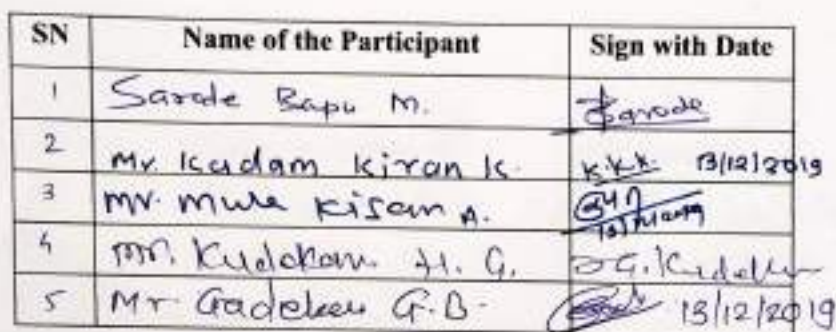 SN Name of the Participant Sign with Date
1 Sarade Bapu M. Sarode
2 Mr. Kadam Kiran K. K.K.K. 13/12/2019
3 Mr. Mule Kisan A. 13/12/2019
4 Mr. H. G.
5 Mr. G.B. 13/12/2019